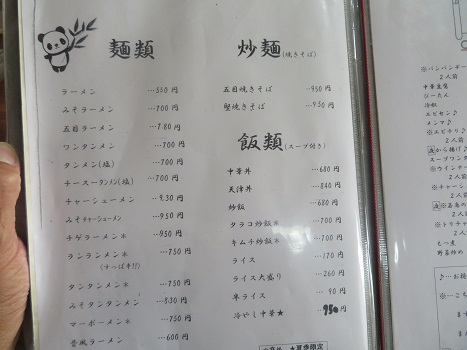 麺類
ラーメン …550円
みそラーメン …700円
五目ラーメン …780円
ワンタンメン …700円
タンメン(塩) …700円
チースータンメン(塩) …700円
チャーシューメン …930円
みそチャーシューメン …950円
チゲラーメン※ …950円
ランランメン※ …750円
(すっぱ辛!!)
タンタンメン※ …750円
みそタンタンメン …830円
マーボーメン※ …750円
昔風ラーメン …600円
炒麺(焼きそば)
五目焼きそば …950円
堅焼きそば …950円
飯類(スープ付き)
中華丼 …680円
天津丼 …840円
炒飯 …680円
タラコ炒飯※ …700円
キムチ炒飯※ …700円
ライス …170円
ライス大盛り …260円
半ライス …90円
冷やし中華★ …950円
★夏季限定
※バンバンジー
2人前
中華豆腐
冷飯
エビセン♪
メンマ♪
※エビチリ♪
2人前
から揚げ♪
スープワンタ
※ウインナー
2人前
※チャーシ
2人前
もつ煮
野菜炒め